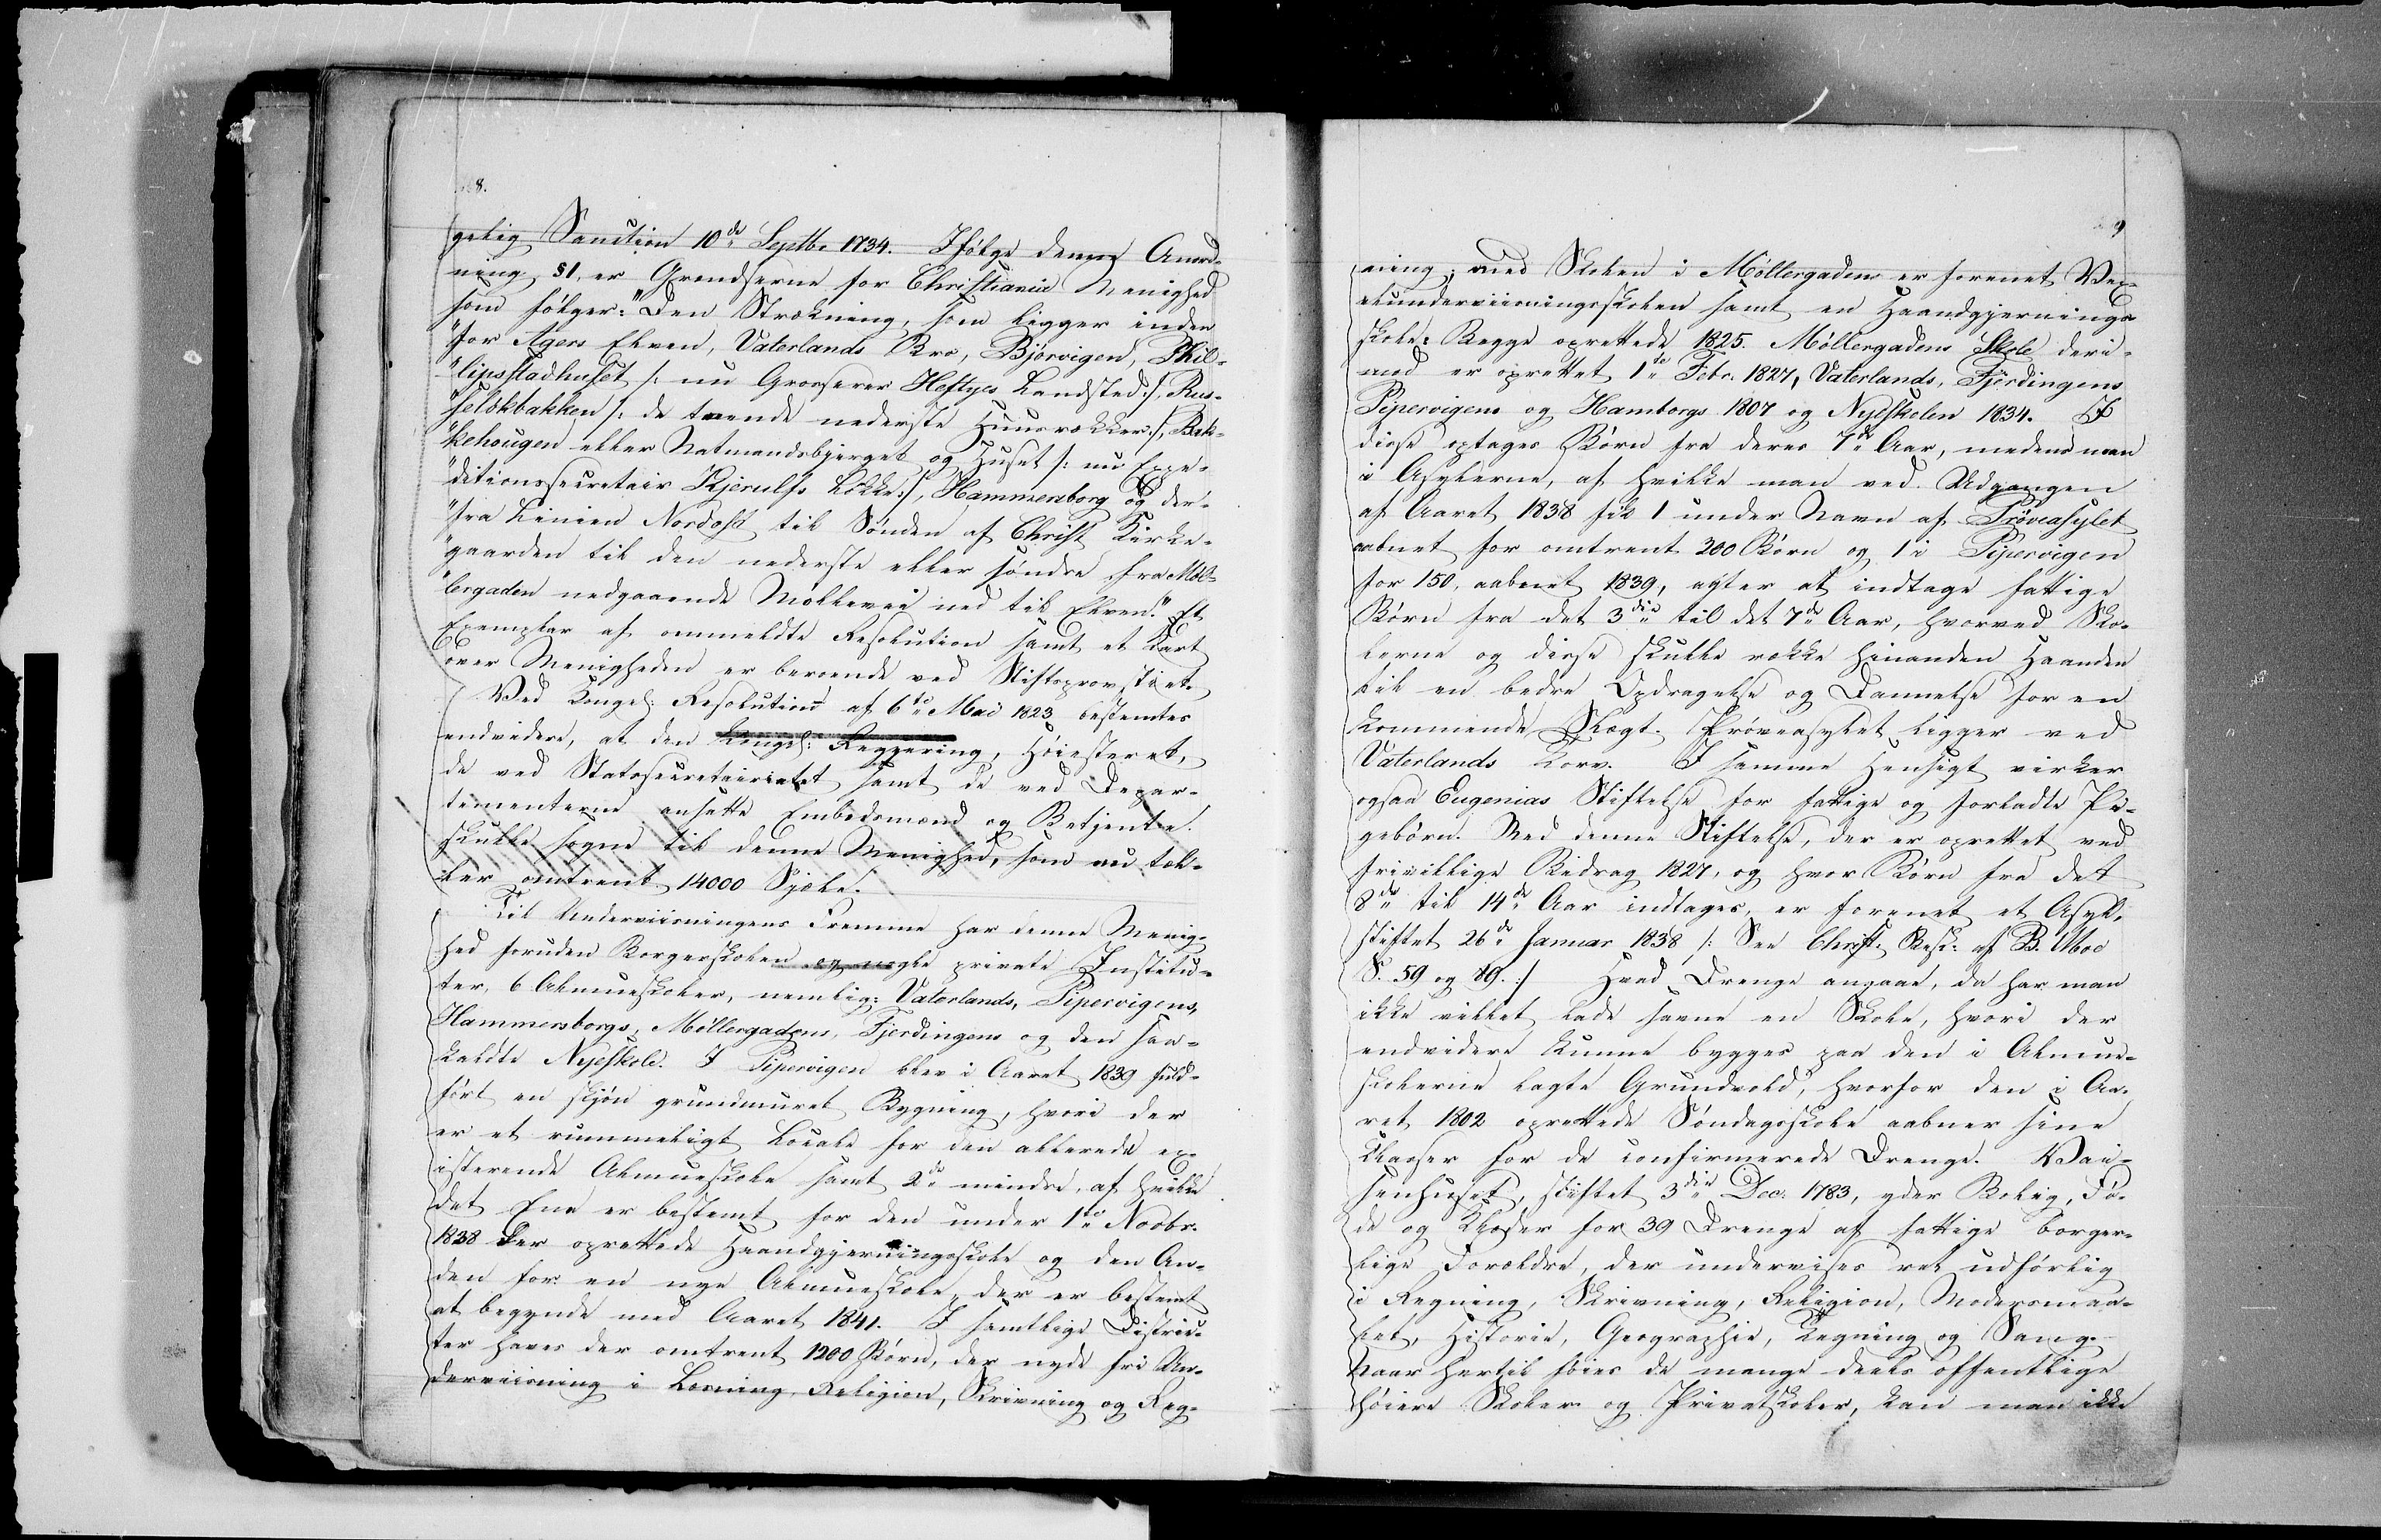 8.
gelig Sanction 10de Septbr 1734. Ifølge denne Anord-
ning §1, er Grændserne for Christiania Menighed
som følger: "Den Strækning, som ligger inden
"for Agers Elven, Vaterlands Bro, Bjørvigen, Phil-
"lipsstadhuset /: nu Grosserer Heftyes Landsted :/, Rus-
"seløkbakken /: de tvende nederste Huusrækker :/, Bak-
"kehougen eller Natmandsbjerget og Huset /: nu Expe-
"ditionssecretair Kjerulfs Løkke :/, Hammersborg og der-
"fra Linien Nordost til Sønden af Christ Kirke-
"gaarden til den nederste eller søndre fra Møl-
"lergaden nedgaaende Møllevei ned til Elven." Et
Exemplar af ommeldte Resolution samt et Kart
over Menigheden er beroende ved Stiftsprovstiet.
Ved Kongel: Resolution af 6te Mai 1823 bestemtes
endvidere, at den Kongel: Regjering, Høiesteret,
de ved Statssecretairiatet samt de ved Depar-
tementerne ansatte Embedsmænd og Betjente
skulle sogne til denne Menighed, som nu tæl-
ler omtrent 14000 Sjæle.
Til Underviisningens Fremme har denne Menig-
hed foruden Borgerskolen og nogle private Institu-
ter, 6 Almueskoler, nemlig: Vaterlands, Pipervigens,
Hammersborgs, Møllergadens, Fjerdingens og den saa-
kaldte Nyeskole. I Pipervigen blev i Aaret 1839 fuld-
ført en skjøn grundmuret Bygning, hvori der
er et rummeligt Locale for den allerede ex-
isterende Almueskole samt 2de mindre, af hvilke
det Ene er bestemt for den under 1te Novbr.
1838 der oprettede Haandgjerningsskole og den An-
den for en nye Almueskole, der er bestemt
at begynde med Aaret 1841. I samtlige Distric-
ter haves der omtrent 1200 Børn, der nyde fri Un-
derviisning i Læsning, Religion, Skrivning og Reg-
9
ning; med Skolen i Møllergaden er forenet Vex-
elunderviisningsskolen samt en Haandgjernings-
skole: Begge oprettede 1825. Møllergadens Skole deri-
mod er oprettet 1te Febr. 1827, Vaterlands, Fjerdingens
Pipervigens og Hamborgs 1807 og Nyeskolen 1834. I
disse optages Børn fra deres 7de Aar, medens man
i Asylerne, af hvilke man ved Udgangen
af Aaret 1838 fik 1 under Navn af Prøveasylet
aabnet for omtrent 200 Børn og 1 i Pipervigen
for 150, aabnet 1839, agter at indtage fattige
Børn fra det 3die til det 7de Aar, hvorved Sko-
lerne og disse skulle række hinanden Haanden
til en bedre Opdragelse og Dannelse for en
kommende Slægt. Prøveasylet ligger ved
Vaterlands Torv. I samme Hensigt virker
ogsaa Eugenias Stiftelse for fattige og forladte Pi-
gebørn. Med denne Stiftelse, der er oprettet ved
frivillige Bidrag 1827, og hvor Børn fra det
8de til 14de Aar indtages, er forenet et Asyl,
stiftet 26de Januar 1838 /: See Christ. Besk: af B. Moe
S. 59 og 89. :/ Hvad Drenge angaae, da har man
ikke villet lade savne en Skole, hvori der
endvidere kunne bygges paa den i Almue-
skolerne lagte Grundvold, hvorfor den i Aa-
ret 1802 oprettede Søndagsskole aabner sine
Classer for de confirmerede Drenge. Vai-
senhuset, stiftet 3die Dec. 1783, yder Bolig, Fø-
de og Klæder for 39 Drenge af fattige borger-
lige Forældre, der undervises ret udførlig
i Regning, Skrivning, Religion, Modersmaa-
let, Historie, Geographie, Tegning og Sang.
Naar hertil føies de mange deels offentlige
høiere Skoler og Privatskoler, kan man ikke